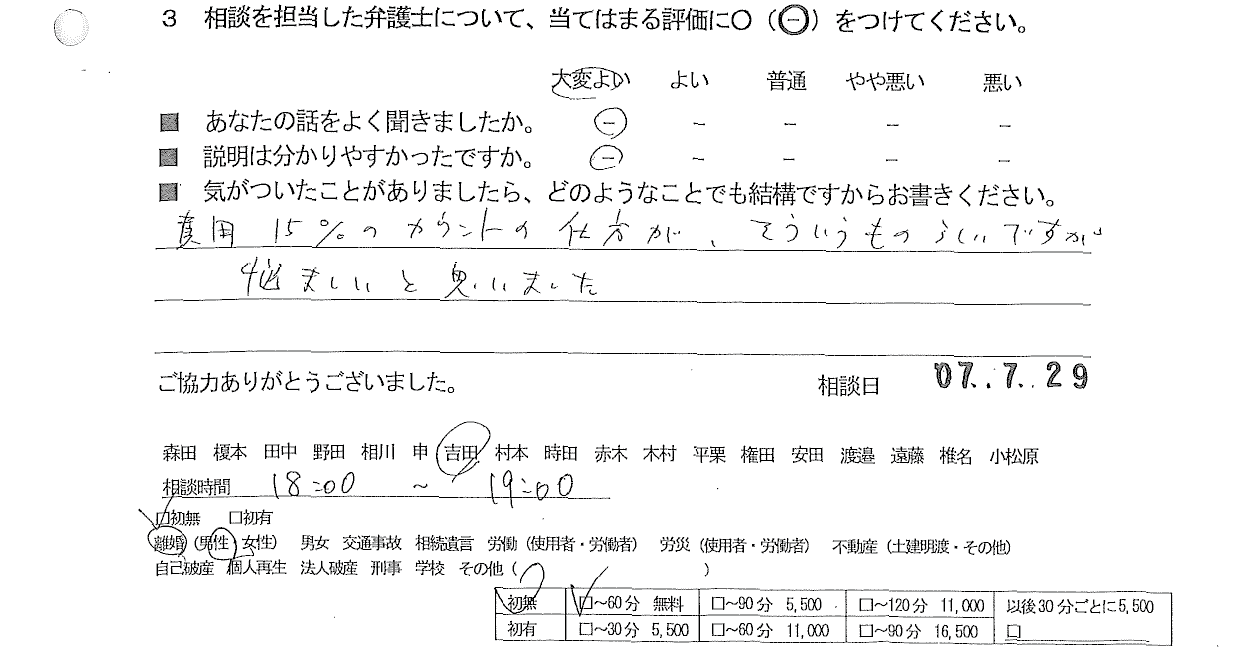 3 相談を担当した弁護士について、当てはまる評価に○(㊀)をつけてください。
大変よい よい 普通 やや悪い 悪い
■ あなたの話をよく聞きましたか。 － － － － －
■ 説明は分かりやすかったですか。 － － － － －
■ 気がついたことがありましたら、どのようなことでも結構ですからお書きください。
費用15%のカウントの仕方が、そういうものらしいですが
悩ましいと思いました
ご協力ありがとうございました。 相談日 07.7.29
森田 榎本 田中 野田 相川 申 吉田 村本 時田 赤木 木村 平栗 権田 安田 渡邉 遠藤 椎名 小松原
相談時間 18:00 ~ 19:00
□初無 □初有
離婚(男性・女性) 男女 交通事故 相続遺言 労働(使用者・労働者) 労災(使用者・労働者) 不動産(土建明渡・その他)
自己破産 個人再生 法人破産 刑事 学校 その他( )
初無 □～60分 無料 □～90分 5,500 □～120分 11,000 以後30分ごとに5,500
初有 □～30分 5,500 □～60分 11,000 □～90分 16,500 □